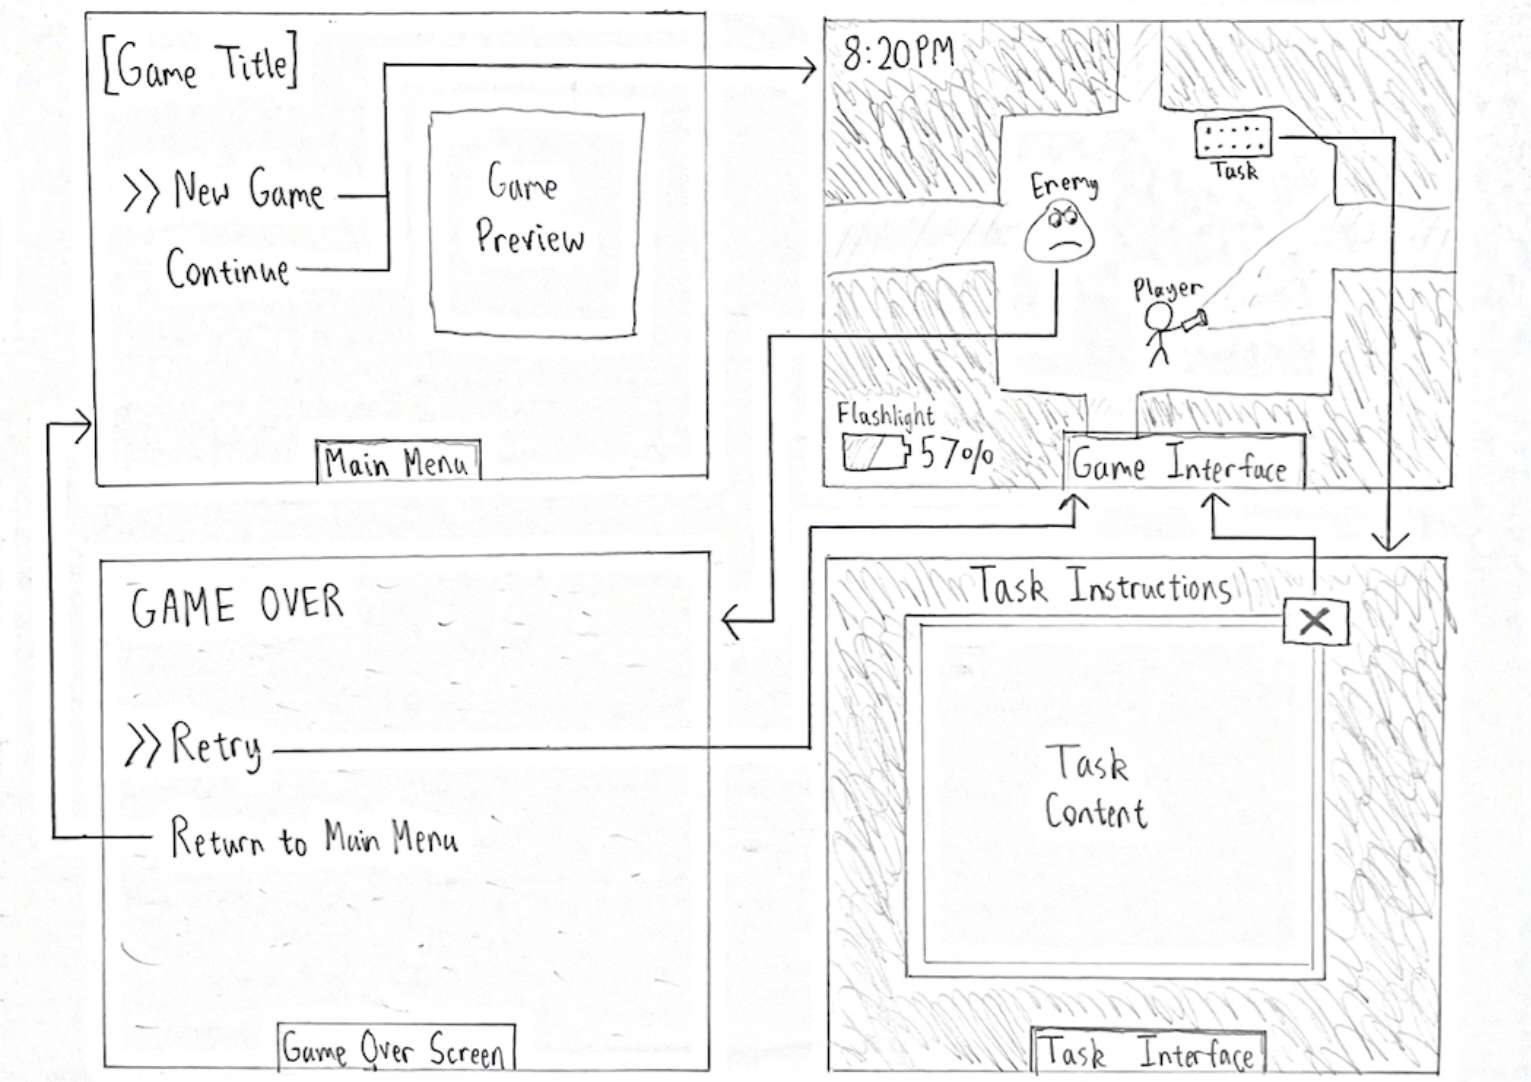 [Game Title]
>> New Game
Continue
Game
Preview
Main Menu
8:20PM
Task
Enemy
Player
Flashlight
57%
Game Interface
GAME OVER
>> Retry
Return to Main Menu
Game Over Screen
Task Instructions
X
Task
Content
Task Interface